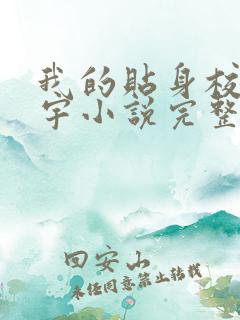 我的贴身校
宇小说完整
回安山
未经同意禁止转载